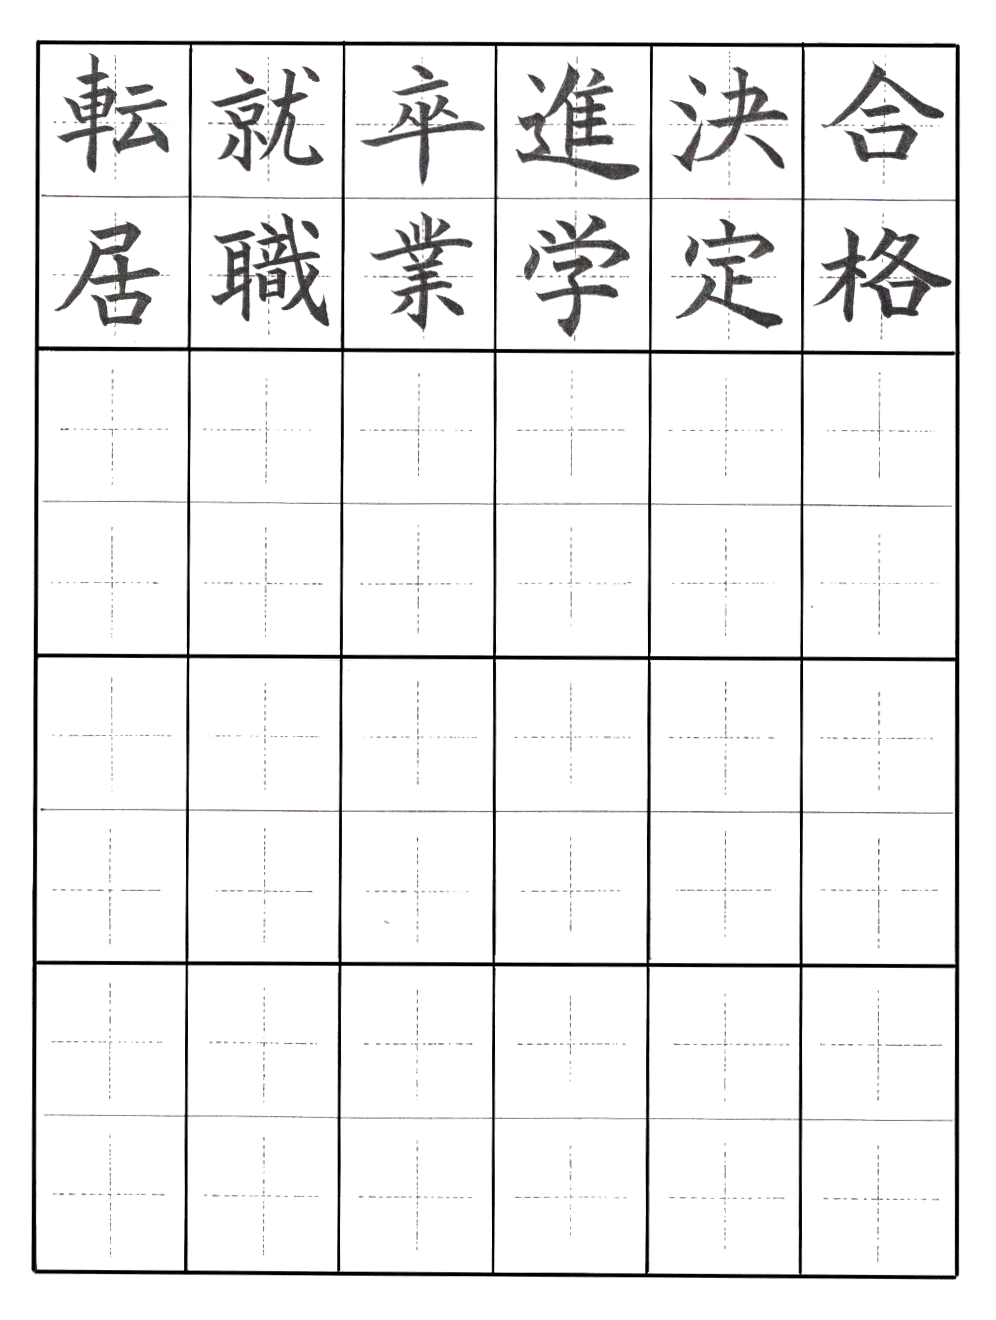 合格
決定
進学
卒業
就職
転居